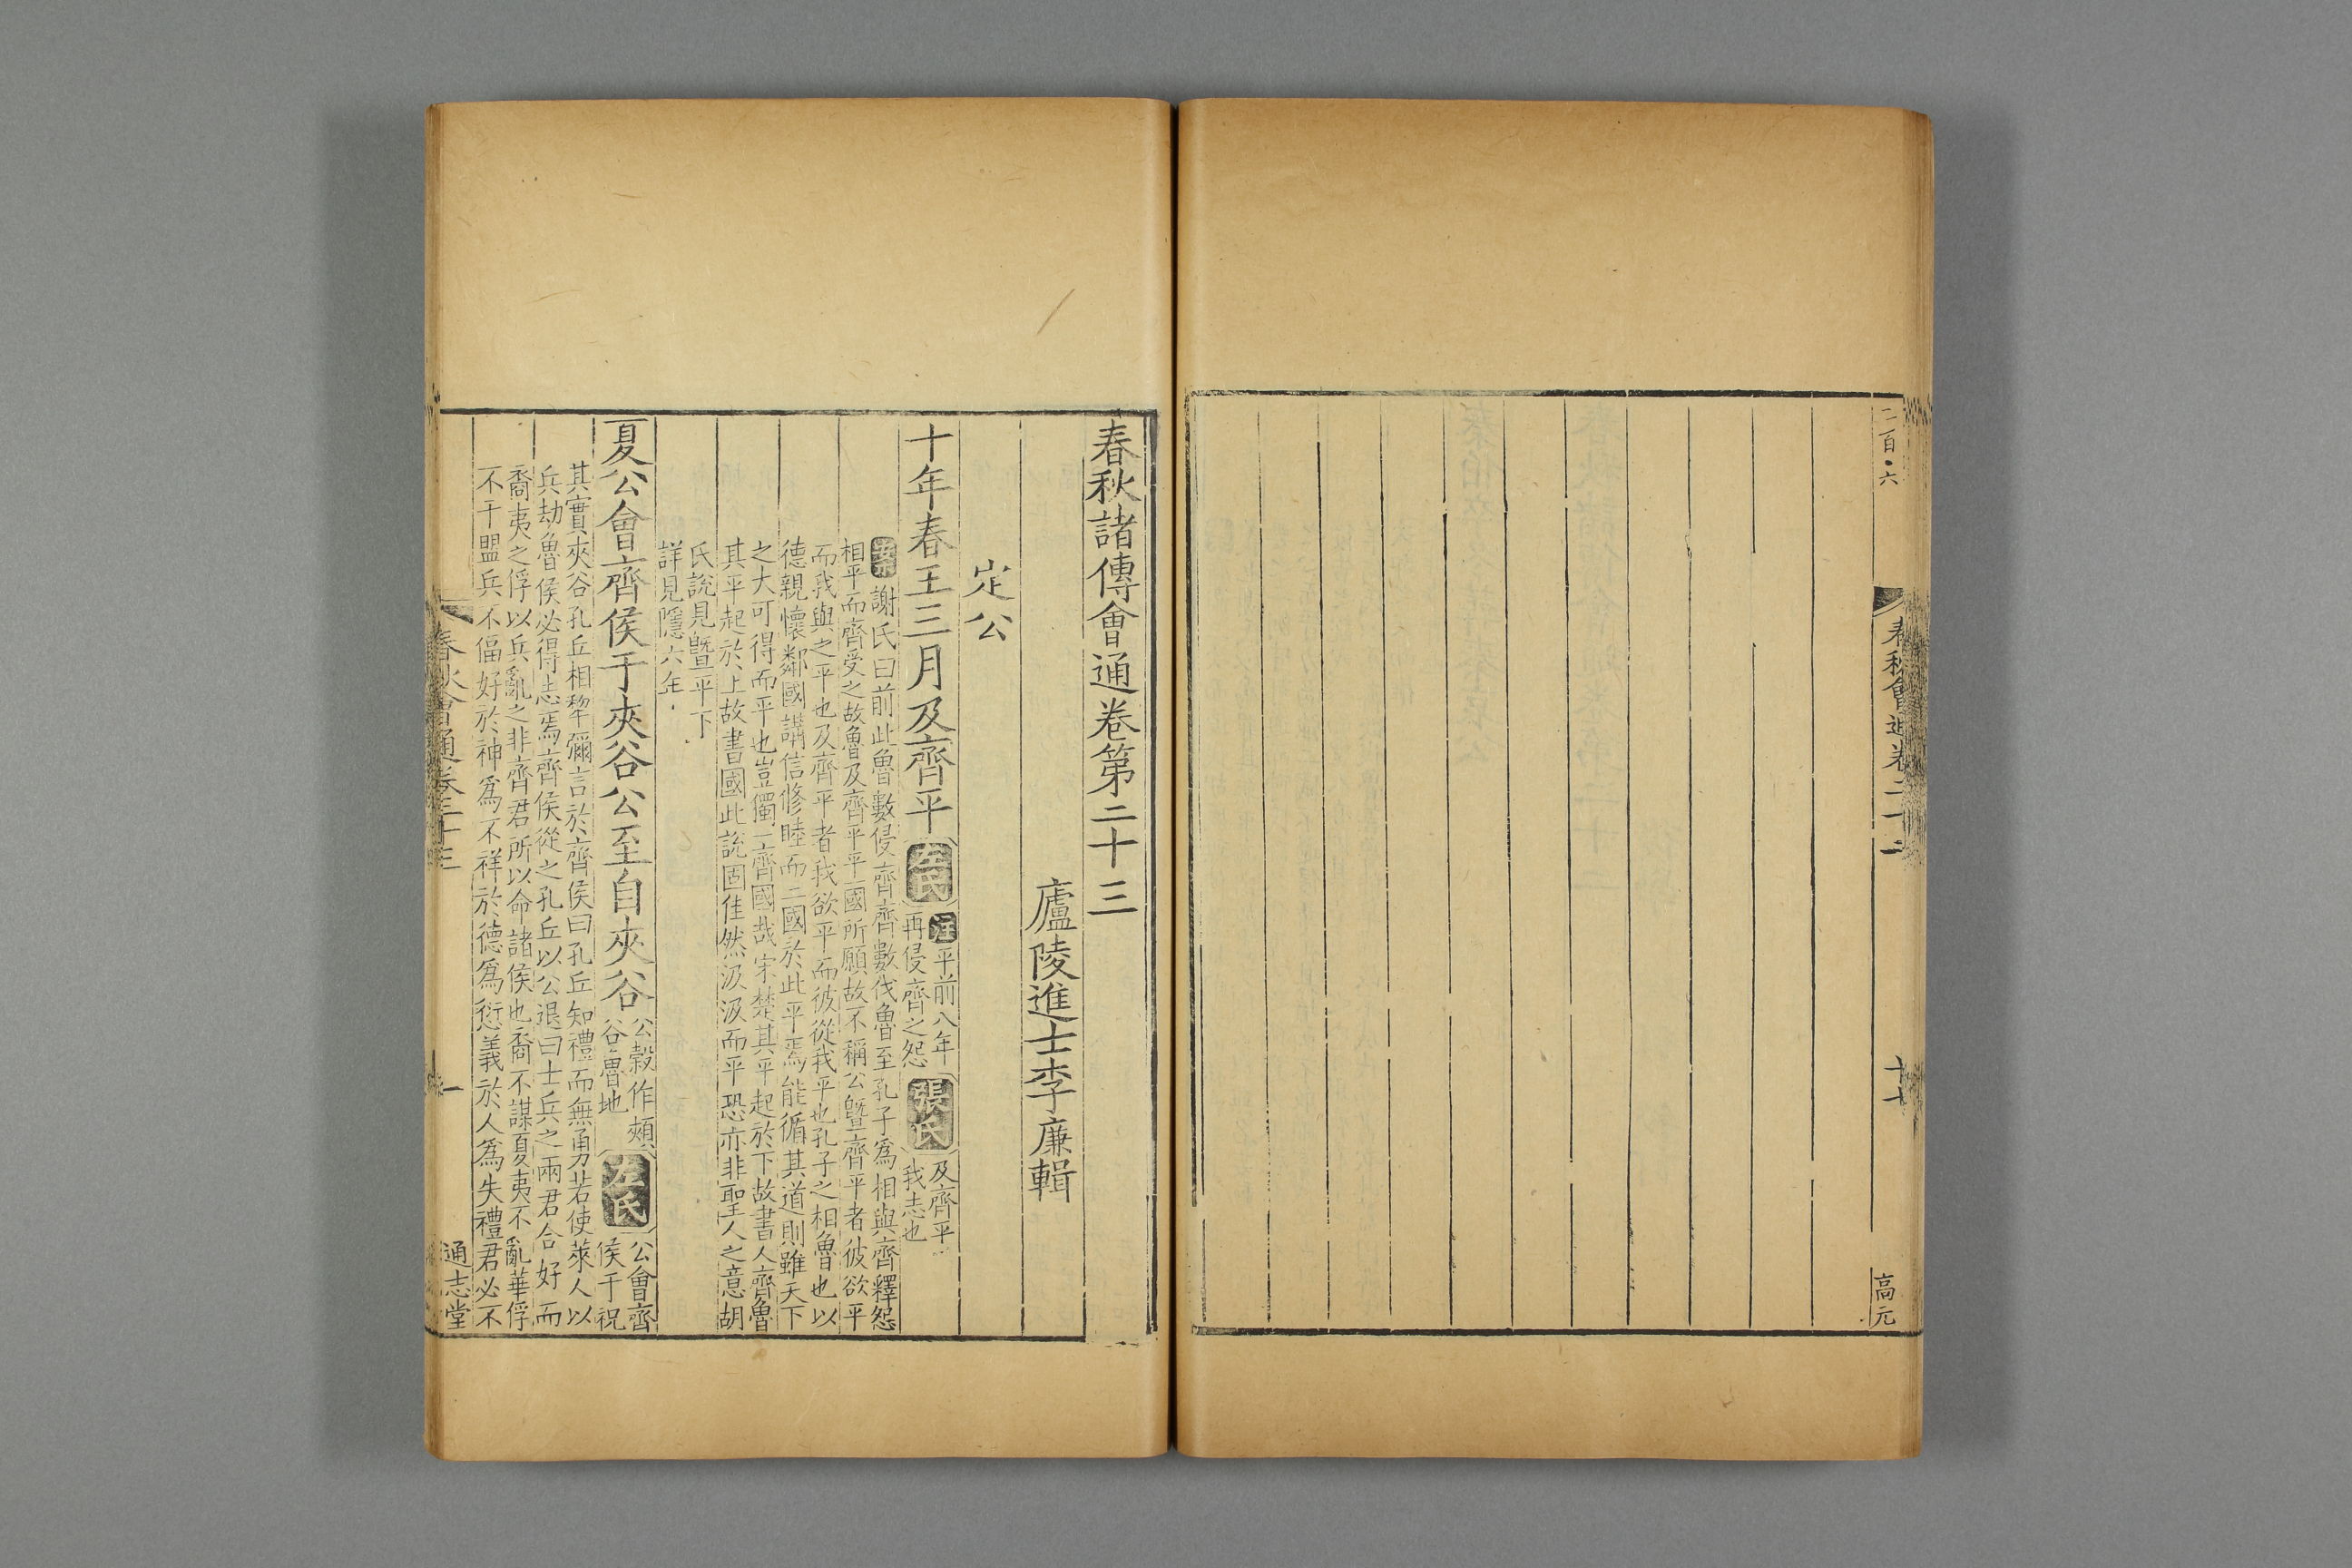 二百六
春秋會通卷二十二
十七
高元
春秋諸傳會通卷第二十三
廬陵進士李廉輯
定公
十年春王三月及齊平
左氏
注平前八年
再侵齊之怨
張氏
及齊平
我志也
案謝氏曰前此魯數侵齊齊數伐魯至孔子爲相與齊釋怨
相平而齊受之故魯及齊平平國所願故不稱公曁齊平者彼欲平
而我與之平也及齊平者我欲平而彼從我平也孔子之相魯也以
德親懷鄰國講信修睦而二國於此平焉能循其道則雖天下
之大可得而平也豈獨一齊國哉宋楚其平起於下故書人齊魯
其平起於上故書國此說固佳然汲汲而平恐亦非聖人之意胡
氏說見曁平下
詳見隱六年
夏公會齊侯于夾谷公至自夾谷
公榖作頰
谷魯地
左氏
公會齊
侯于祝
其實夾谷孔丘相犂彌言於齊侯曰孔丘知禮而無勇若使萊人以
兵劫魯侯必得志焉齊侯從之孔丘以公退曰士兵之兩君合好而
裔夷之俘以兵亂之非齊君所以命諸侯也裔不謀夏夷不亂華俘
不干盟兵不偪好於神爲不祥於德爲愆義於人爲失禮君必不
春秋會通卷二十三
一
通志堂